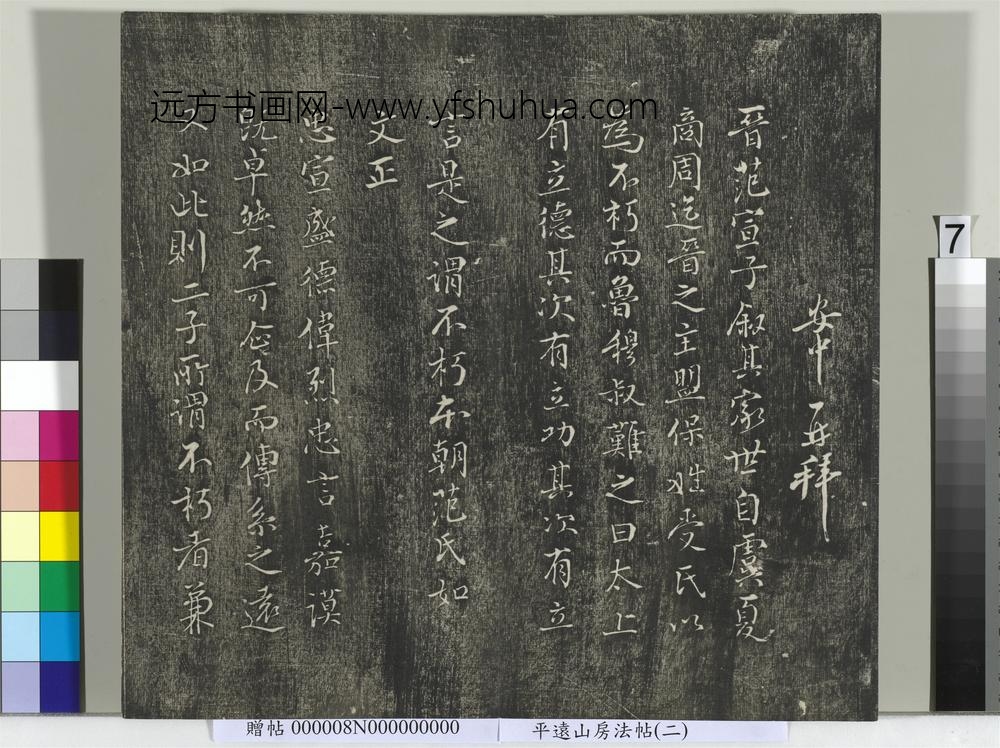 远方书画网-www.yfshuhua.com
安中再拜
晉范宣子叙其家世自虞夏
商周迄晉之主盟保姓受氏以
為不朽而魯穆叔難之曰太上
有立德其次有立功其次有立
言是之謂不朽本朝范氏如
文正
忠宣盛德偉烈忠言嘉謨
既卓然不可企及而傳系之遠
又如此則二子所謂不朽者兼
7
贈帖 000008N000000000
平遠山房法帖(二)